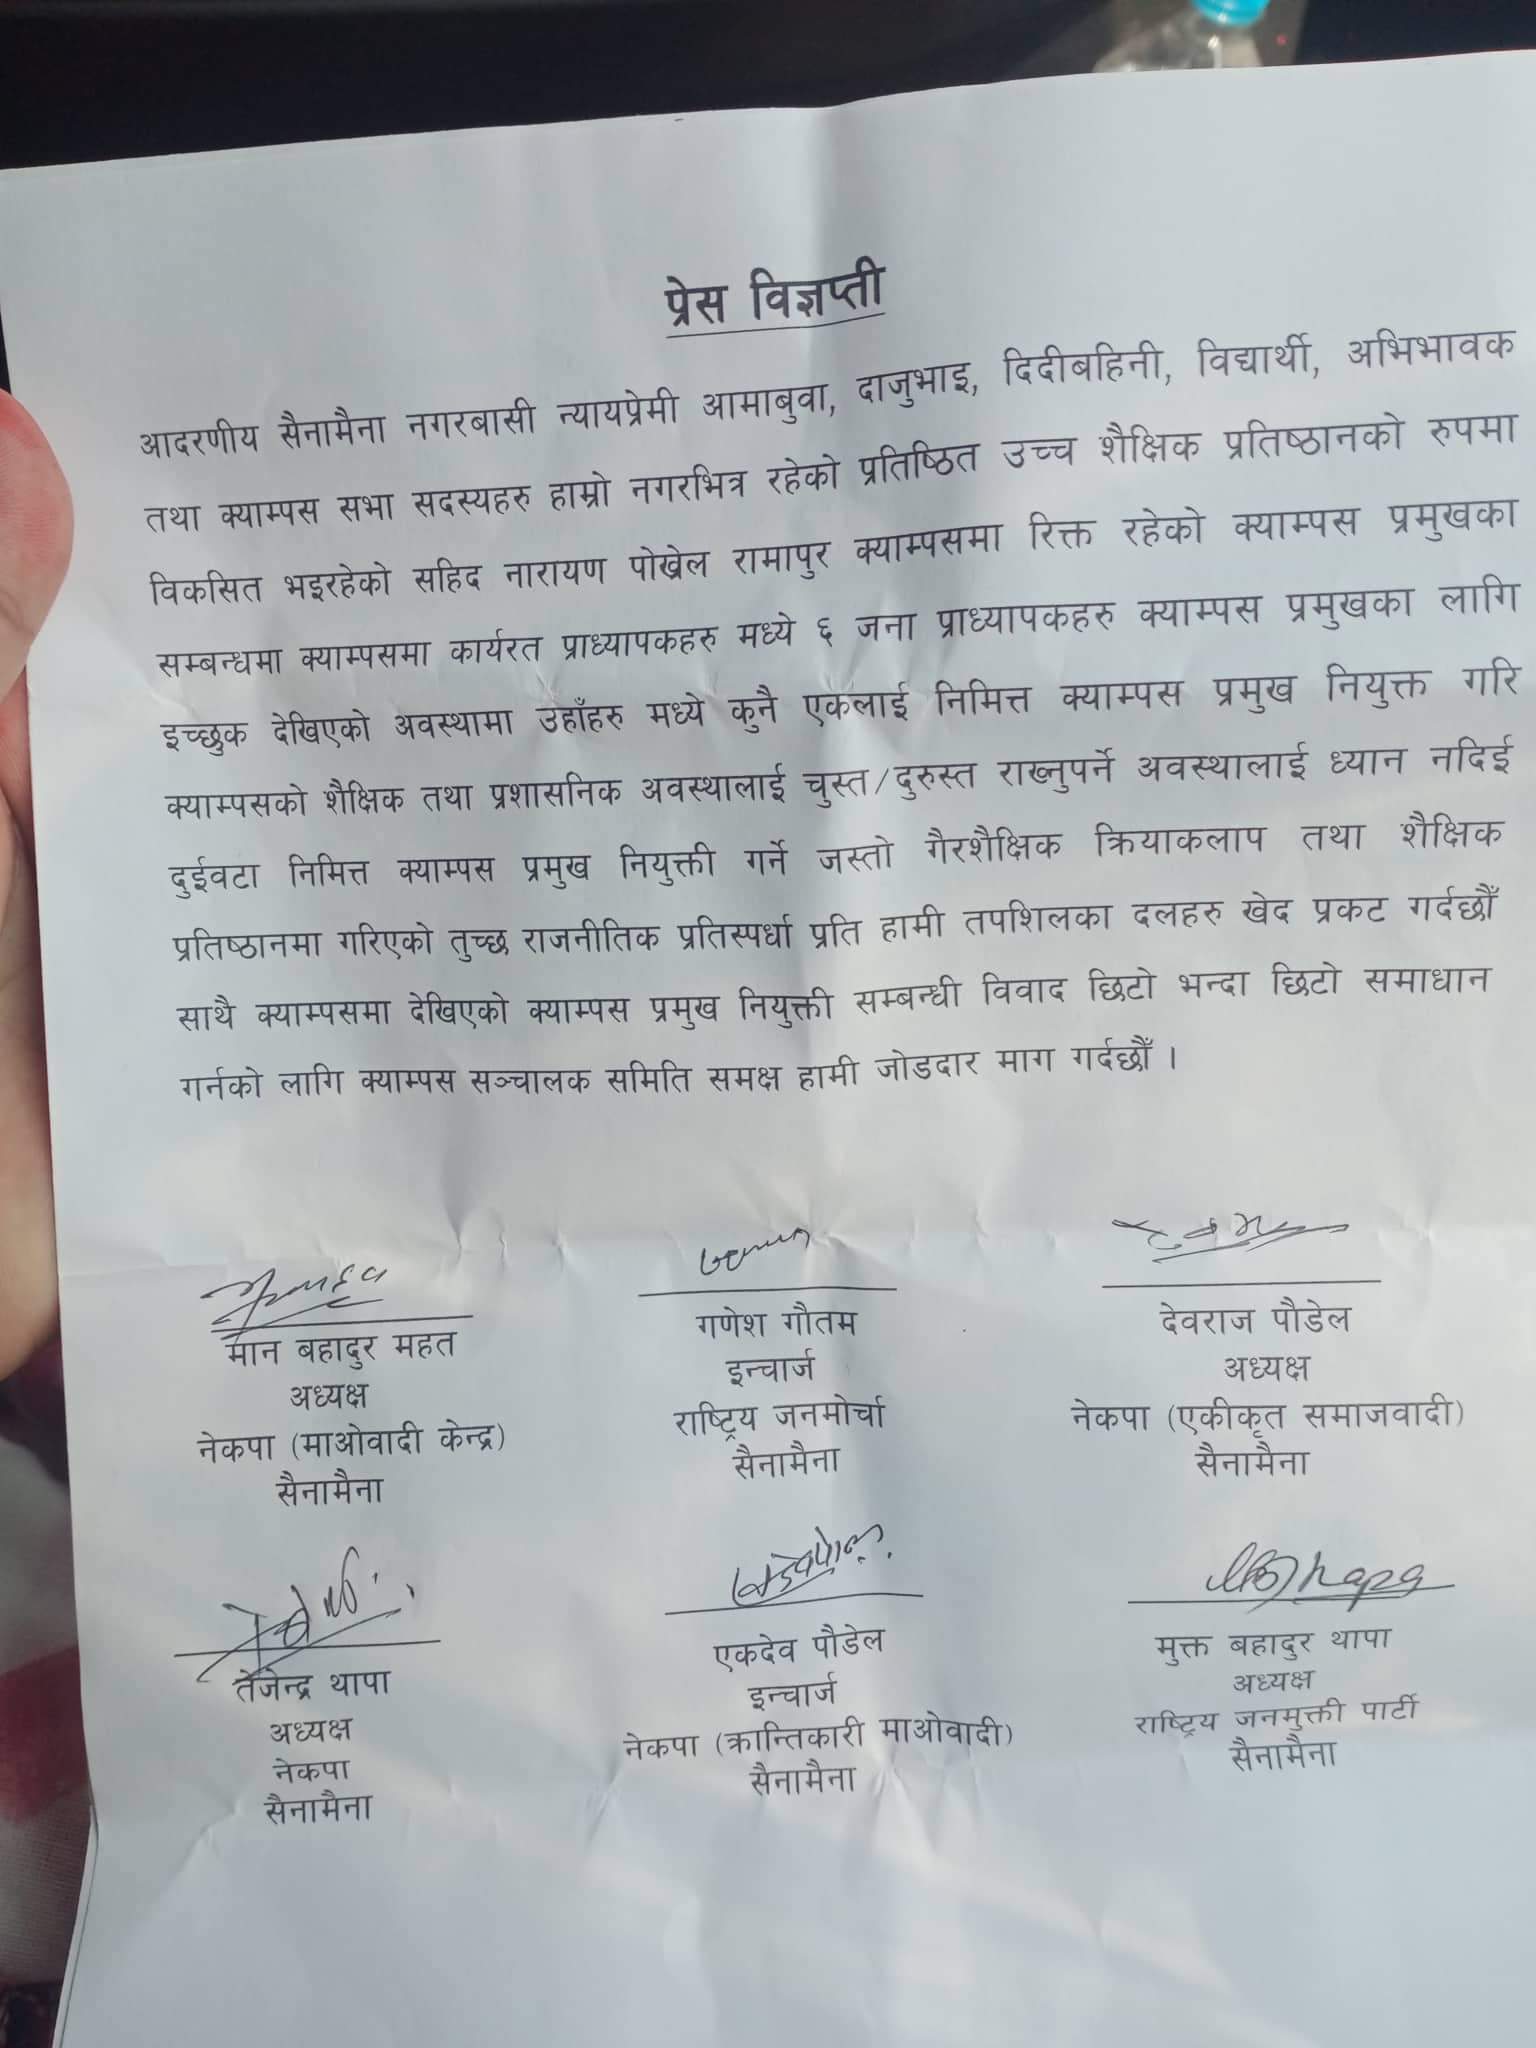 प्रेस विज्ञप्ती
आदरणीय सैनामैना नगरबासी न्यायप्रेमी आमाबुवा, दाजुभाइ, दिदीबहिनी, विद्यार्थी, अभिभावक
तथा क्याम्पस सभा सदस्यहरु हाम्रो नगरभित्र रहेको प्रतिष्ठित उच्च शैक्षिक प्रतिष्ठानको रुपमा
विकसित भइरहेको सहिद नारायण पोख्रेल रामापुर क्याम्पसमा रिक्त रहेको क्याम्पस प्रमुखका
सम्बन्धमा क्याम्पसमा कार्यरत प्राध्यापकहरु मध्ये ६ जना प्राध्यापकहरु क्याम्पस प्रमुखका लागि
इच्छुक देखिएको अवस्थामा उहाँहरु मध्ये कुनै एकलाई निमित्त क्याम्पस प्रमुख नियुक्त गरि
क्याम्पसको शैक्षिक तथा प्रशासनिक अवस्थालाई चुस्त/दुरुस्त राख्नुपर्ने अवस्थालाई ध्यान नदिई
दुईवटा निमित्त क्याम्पस प्रमुख नियुक्ती गर्ने जस्तो गैरशैक्षिक क्रियाकलाप तथा शैक्षिक
प्रतिष्ठानमा गरिएको तुच्छ राजनीतिक प्रतिस्पर्धा प्रति हामी तपशिलका दलहरु खेद प्रकट गर्दछौँ
साथै क्याम्पसमा देखिएको क्याम्पस प्रमुख नियुक्ती सम्बन्धी विवाद छिटो भन्दा छिटो समाधान
गर्नको लागि क्याम्पस सञ्चालक समिति समक्ष हामी जोडदार माग गर्दछौँ ।
मान बहादुर महत
अध्यक्ष
नेकपा (माओवादी केन्द्र)
सैनामैना
गणेश गौतम
इन्चार्ज
राष्ट्रिय जनमोर्चा
सैनामैना
देवराज पौडेल
अध्यक्ष
नेकपा (एकीकृत समाजवादी)
सैनामैना
तेजेन्द्र थापा
अध्यक्ष
नेकपा
सैनामैना
एकदेव पौडेल
इन्चार्ज
नेकपा (क्रान्तिकारी माओवादी)
सैनामैना
मुक्त बहादुर थापा
अध्यक्ष
राष्ट्रिय जनमुक्ती पार्टी
सैनामैना